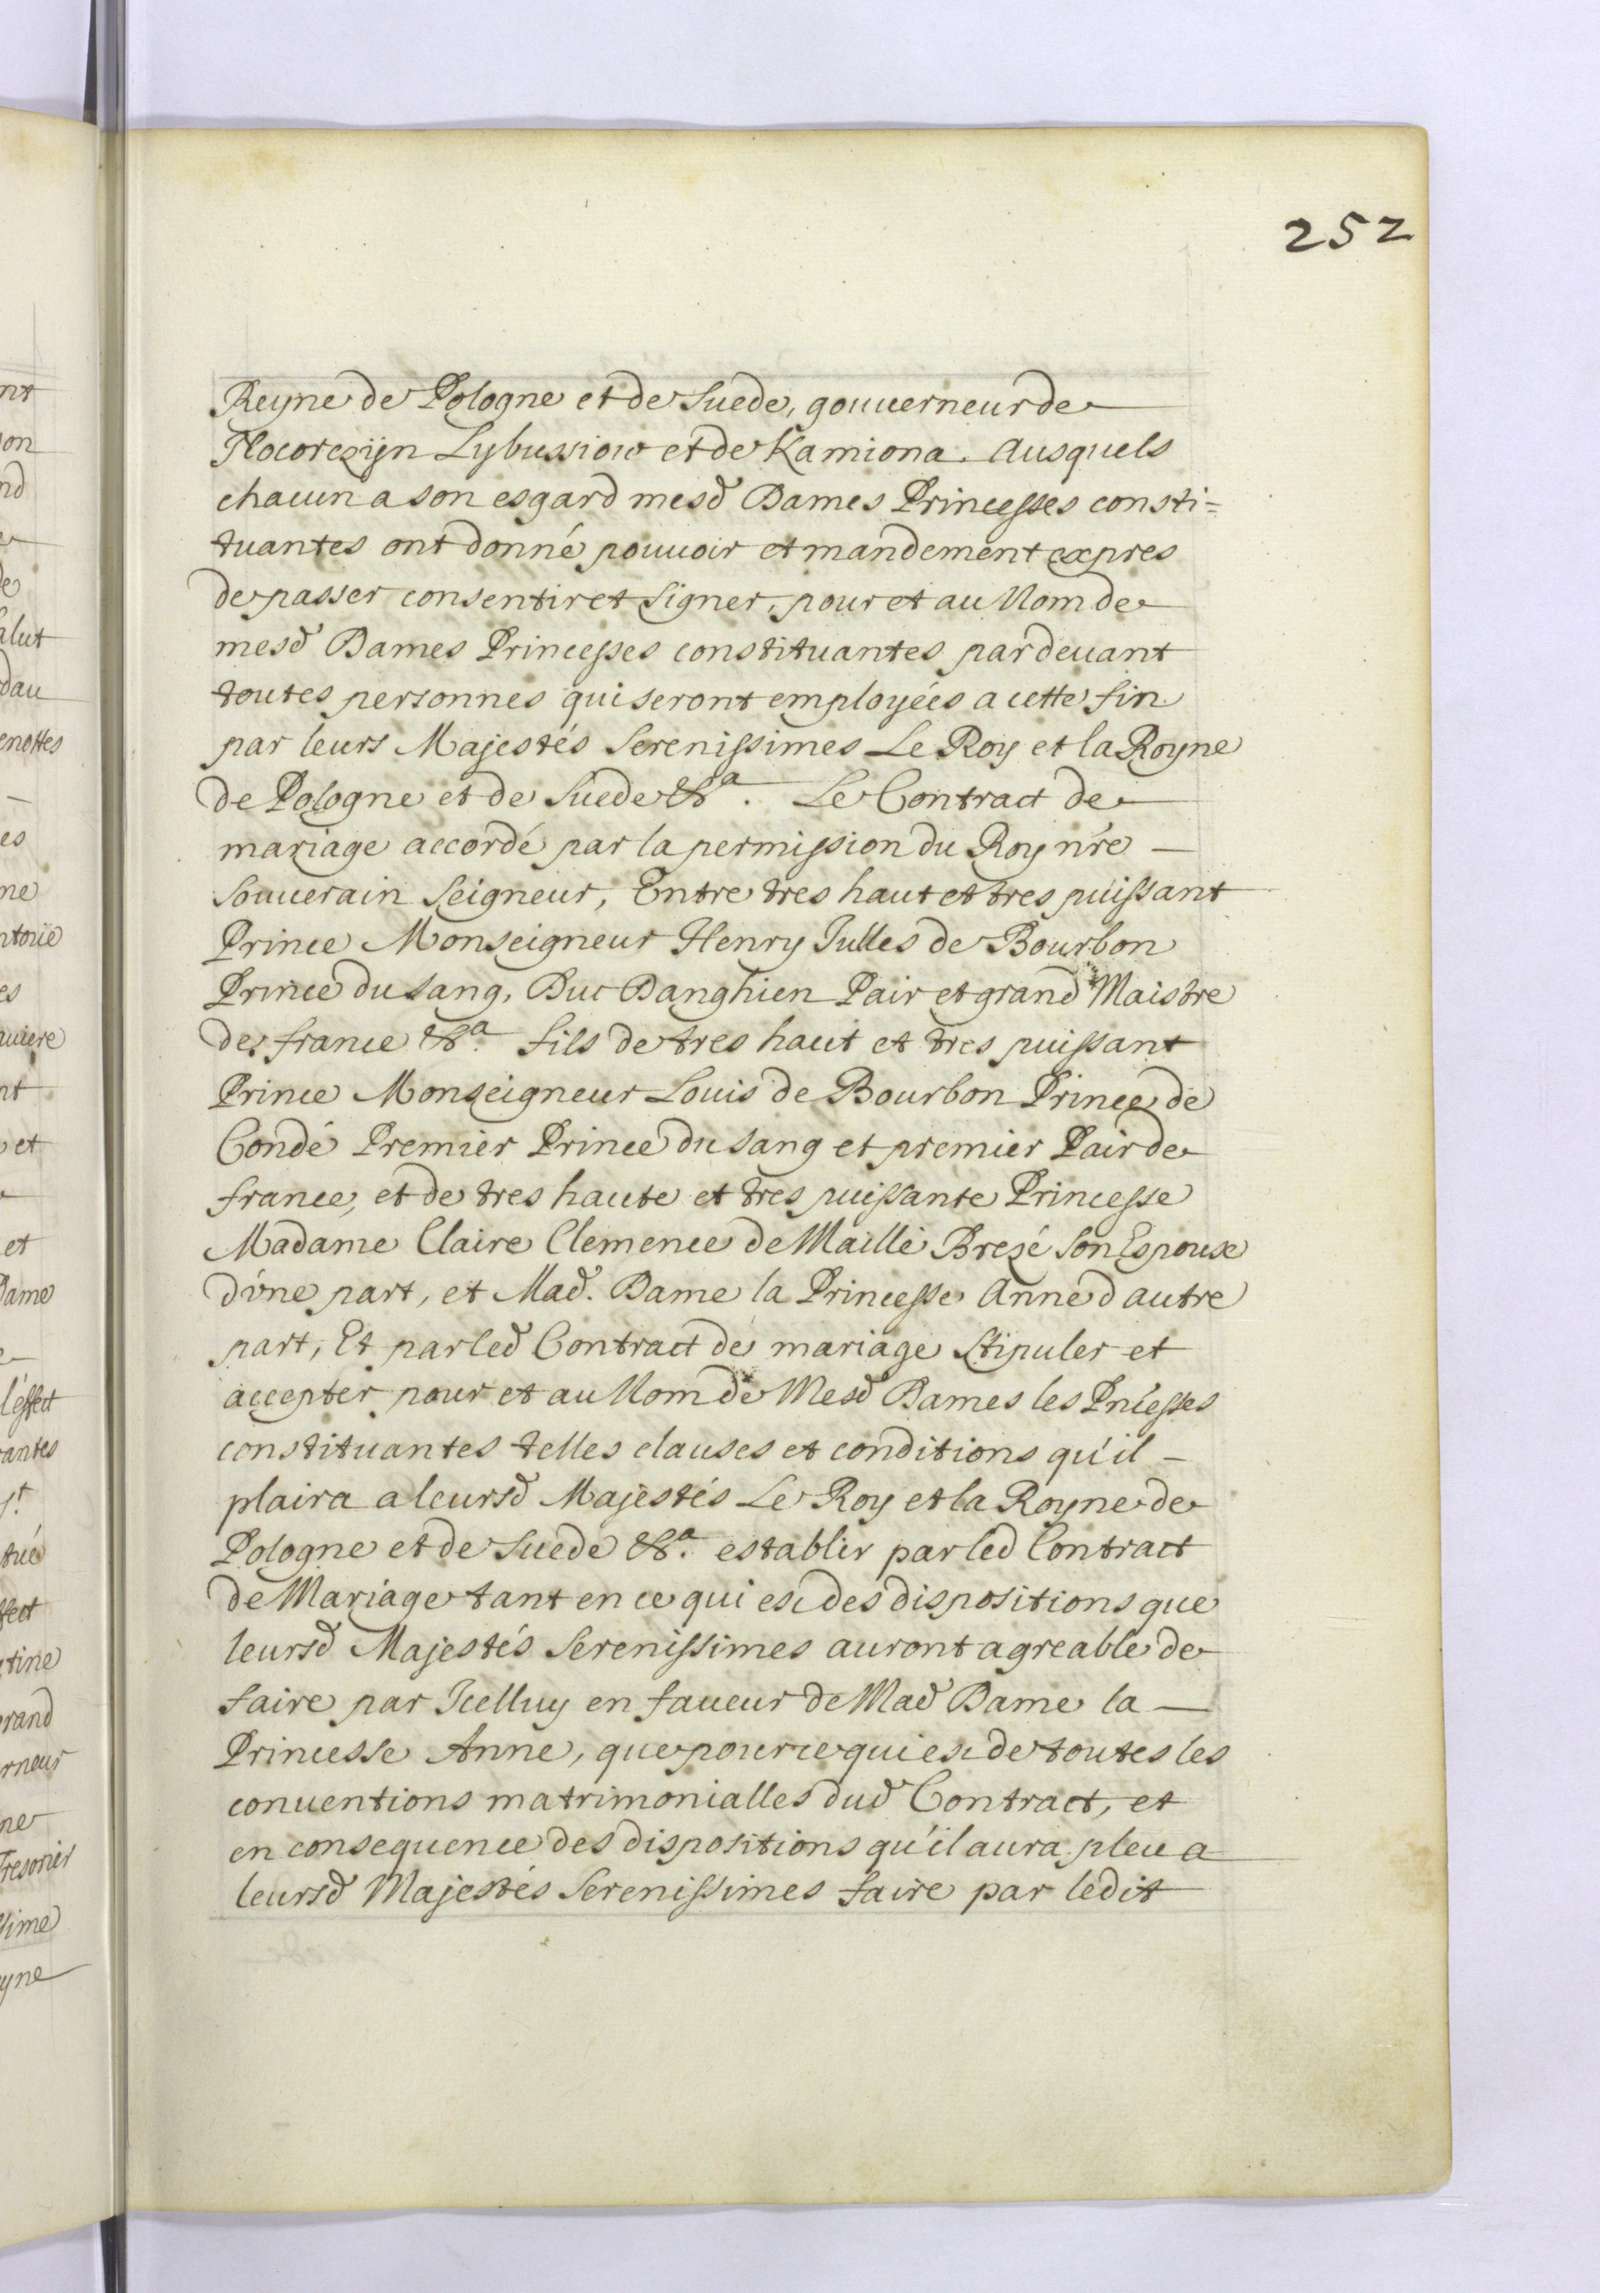 252
Reyne de Pologne et de Suede, gouuerneur de
Lybussiow et de Kamiona. Ausquels
chacun a son esgard mesd Dames Princesses consti=
tuantes ont donné pouuoir et mandement expres
de passer consentir et signer, pour et au Nom de
mesd Dames Princesses constituantes pardeuant
toutes personnes qui seront employées a cette fin
par leurs Majestés Serenissimes Le Roy et la Royne
de Pologne et de Suede &a. Le Contract de
mariage accordé par la permission du Roy nr̃e
Souuerain Seigneur, Entre tres haut et tres puissant
Prince Monseigneur Henry Julles de Bourbon
Prince du sang, Duc Danghien Pair et grand Maistre
de france &a. fils de tres haut et tres puissant
Prince Monseigneur Louis de Bourbon Prince de
Condé Premier Prince du sang et premier Pair de
france, et de tres haute et tres puissante Princesse
Madame Claire Clemence de Maillé Brezé son Espouse
d'vne part, et Mad. Dame la Princesse Anne d'autre
part, Et par led Contract de mariage Stipuler et
accepter pour et au Nom de Mesd Dames les Pncesses
constituantes telles clauses et conditions qu'il
plaira a leursd Majestés Le Roy et la Royne de
Pologne et de Suede &a. establir par led Contract
de Mariage tant en ce qui est des dispositions que
leursd Majestés Serenissimes auront agreable de
faire par Icelluy en faueur de Mad Dame la
Princesse Anne, que pour ce qui est de toutes les
conuentions matrimonialles dud Contract, et
en consequence des dispositions qu'il aura pleu a
leursd Majestés Serenissimes faire par ledit